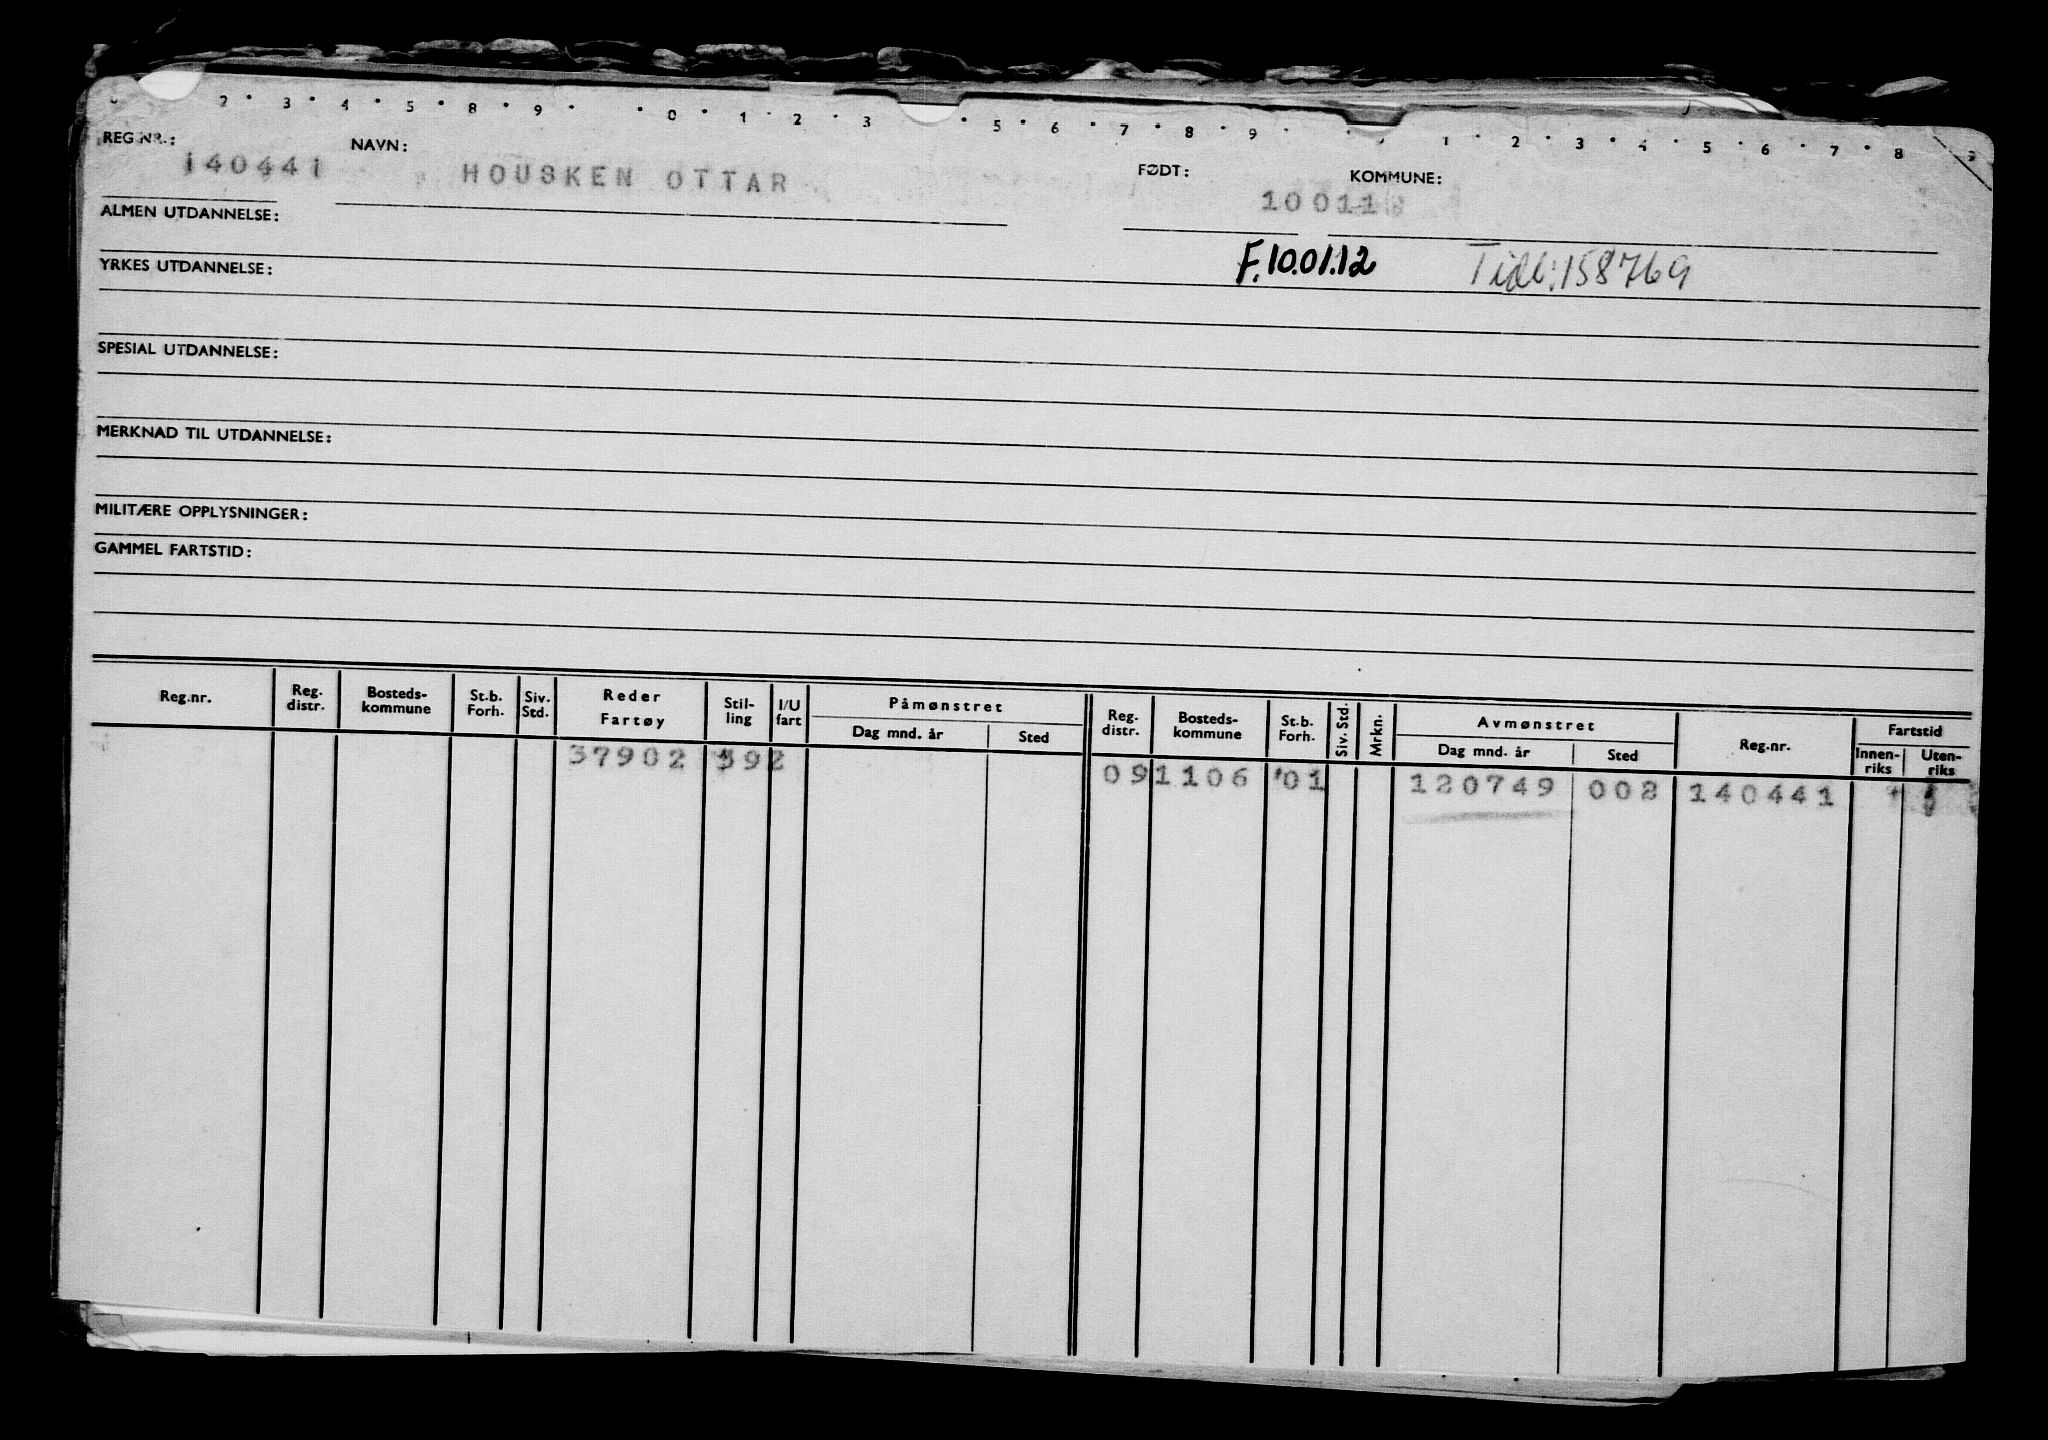 2 • 3 • 4 • 5 • 8 • 9 • • 0 • 1 • 2 • 3 • 5 • 6 • 7 • 8 • 9 • 1 • 2 • 3 • 4 • 5 • 6 • 7 • 8 9
REG.NR.: NAVN: FØDT: KOMMUNE:
140441 HOUSKEN OTTAR 10011
ALMEN UTDANNELSE:
F.10.01.12 Tidl: 158769
YRKES UTDANNELSE:
SPESIAL UTDANNELSE:
MERKNAD TIL UTDANNELSE:
MILITÆRE OPPLYSNINGER:
GAMMEL FARTSTID:
Reg.nr. Reg. distr. Bosteds-kommune St.b. Forh. Siv. Std. Reder Fartøy Stil-ling I/U fart Påmønstret Dag mnd. år Sted Reg. distr. Bosteds-kommune St.b. Forh. Siv. Std. Mrkn. Avmønstret Dag mnd. år Sted Reg.nr. Fartstid Innen-riks Uten-riks
37902 392 091106 01 120749 002 140441